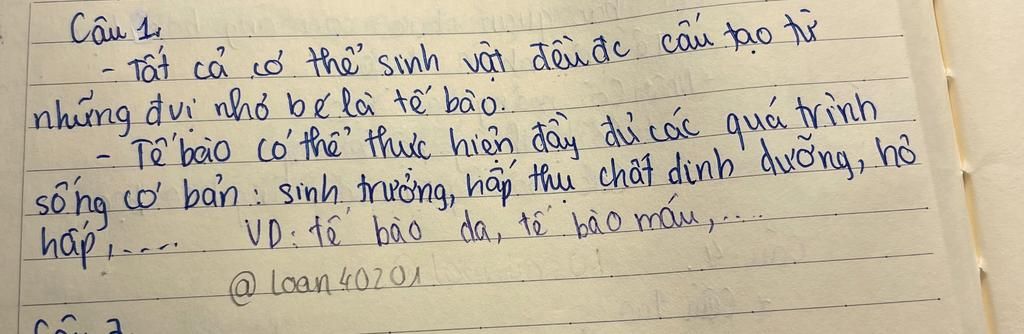 Câu 1.
- Tất cả cơ thể sinh vật đều đc cấu tạo từ
những đvi nhỏ bé là tế bào.
- Tế bào có thể thực hiện đầy đủ các quá trình
sống cơ bản: sinh trưởng, hấp thu chất dinh dưỡng, hô
hấp,.... VD: tế bào da, tế bào máu,....
@loan40201